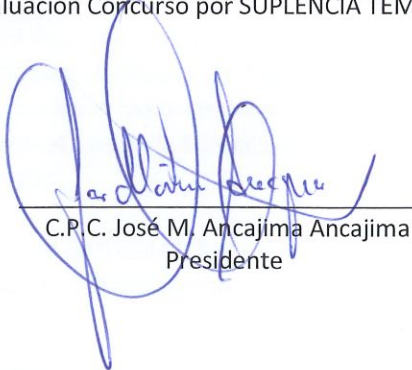 luación Concurso por SUPLENCIA TEM
C.P.C. José M. Ancajima Ancajima
Presidente